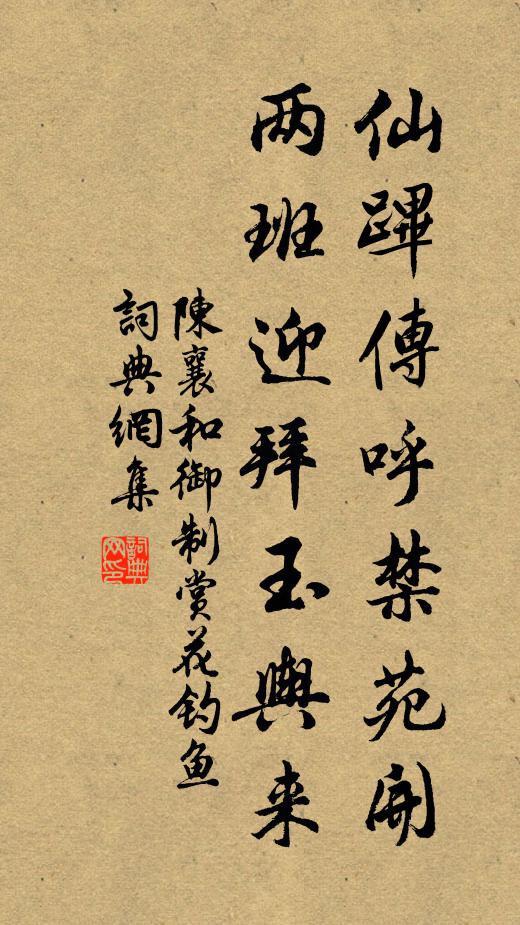 仙蹕傳呼禁苑開
两班迎拜玉輿来
陳襄和御制賞花钓鱼
詞典網集
詞典网印